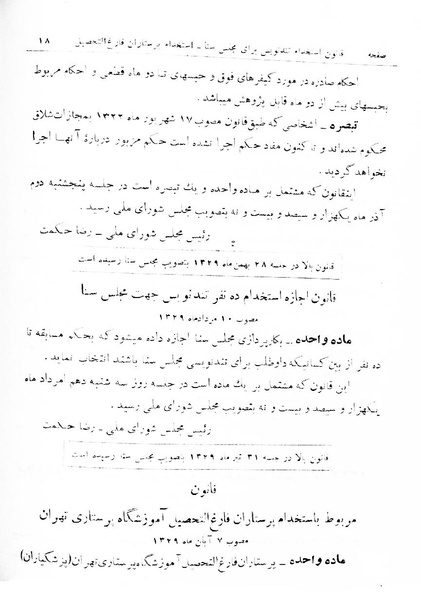 صفحه قانون استخدام تندنویس برای مجلس سنا ـ استخدام پرستاران فارغ‌التحصیل ۱۸
احکام صادره در مورد کیفرهای فوق و حبسهای تا دو ماه قطعی و احکام مربوط
بحبسهای بیش از دو ماه قابل پژوهش میباشد .
تبصره ـ اشخاصی که طبق قانون مصوب ۱۷ شهریور ماه ۱۳۲۲ بمجازات شلاق
محکوم شده‌اند و تا کنون مفاد حکم اجرا نشده است حکم مزبور دربارهٔ آنها اجرا
نخواهد گردید .
اینقانون که مشتمل بر ماده واحده و یك تبصره است در جلسه پنجشنبه دوم
آذر ماه یکهزار و سیصد و بیست و نه بتصویب مجلس شورای ملی رسید .
رئیس مجلس شورای ملی ـ رضا حکمت
قانون بالا در جلسه ۲۸ بهمن ماه ۱۳۲۹ بتصویب مجلس سنا رسیده است
قانون اجازه استخدام ده نفر تندنویس جهت مجلس سنا
مصوب ۱۰ مردادماه ۱۳۲۹
ماده واحده ـ بکارپردازی مجلس سنا اجازه داده میشود که بحکم مسابقه تا
ده نفر از بین کسانیکه داوطلب برای تندنویسی مجلس سنا باشند انتخاب نماید .
این قانون که مشتمل بر یك ماده است در جلسه روز سه شنبه دهم امرداد ماه
یکهزار و سیصد و بیست و نه بتصویب مجلس شورای ملی رسید .
رئیس مجلس شورای ملی ـ رضا حکمت
قانون بالا در جلسه ۳۱ تیر ماه ۱۳۲۹ بتصویب مجلس سنا رسیده است
قانون
مربوط باستخدام پرستاران فارغ‌التحصیل آموزشگاه پرستاری تهران
مصوب ۷ آبان ماه ۱۳۲۹
ماده واحده ـ پرستاران فارغ‌التحصیل آموزشگاه پرستاری تهران (پزشکیاران)